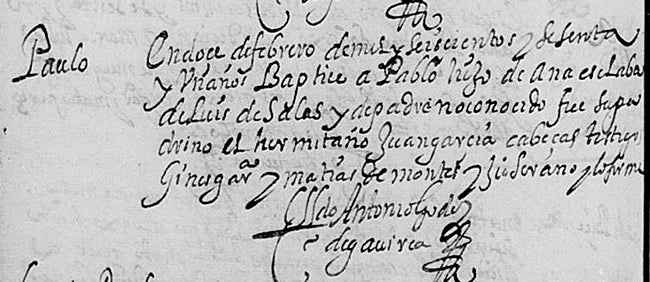 Paulo
En doce de febrero de mil y seiscientos y sesenta
y un años Baptice a Pablo hijo de Ana esclaba
de Luis de Salas y de padre no conocido fue su pa
drino el hermitaño Juan garcia cabeças testigos
Gines gar.ᵃ y matias de montes y Ju.º Serano y lo firme
Antonio
de gavirea